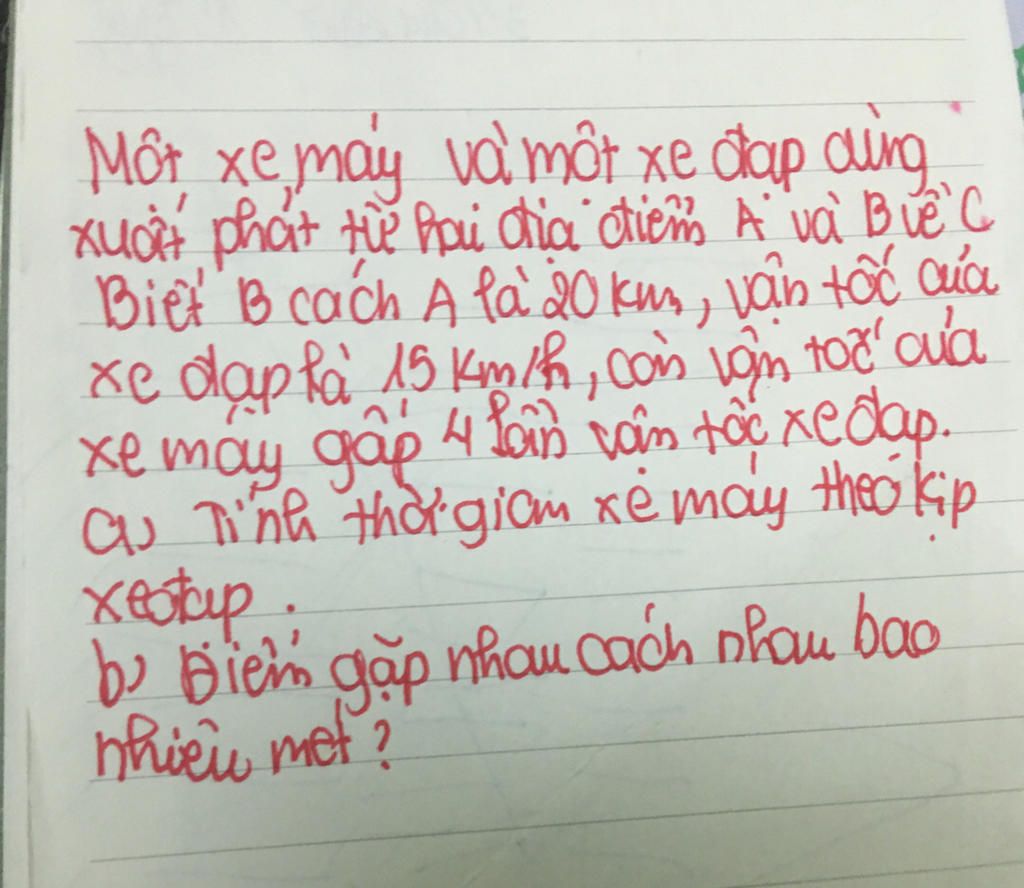 Một xe máy và một xe đạp cùng
xuất phát từ hai địa điểm A và B về C
Biết B cách A là 20 km, vận tốc của
xe đạp là 15 Km/h, còn vận tốc của
xe máy gấp 4 lần vận tốc xe đạp.
a) Tính thời gian xe máy theo kịp
xe đạp.
b) Điểm gặp nhau cách nhau bao
nhiêu mét?